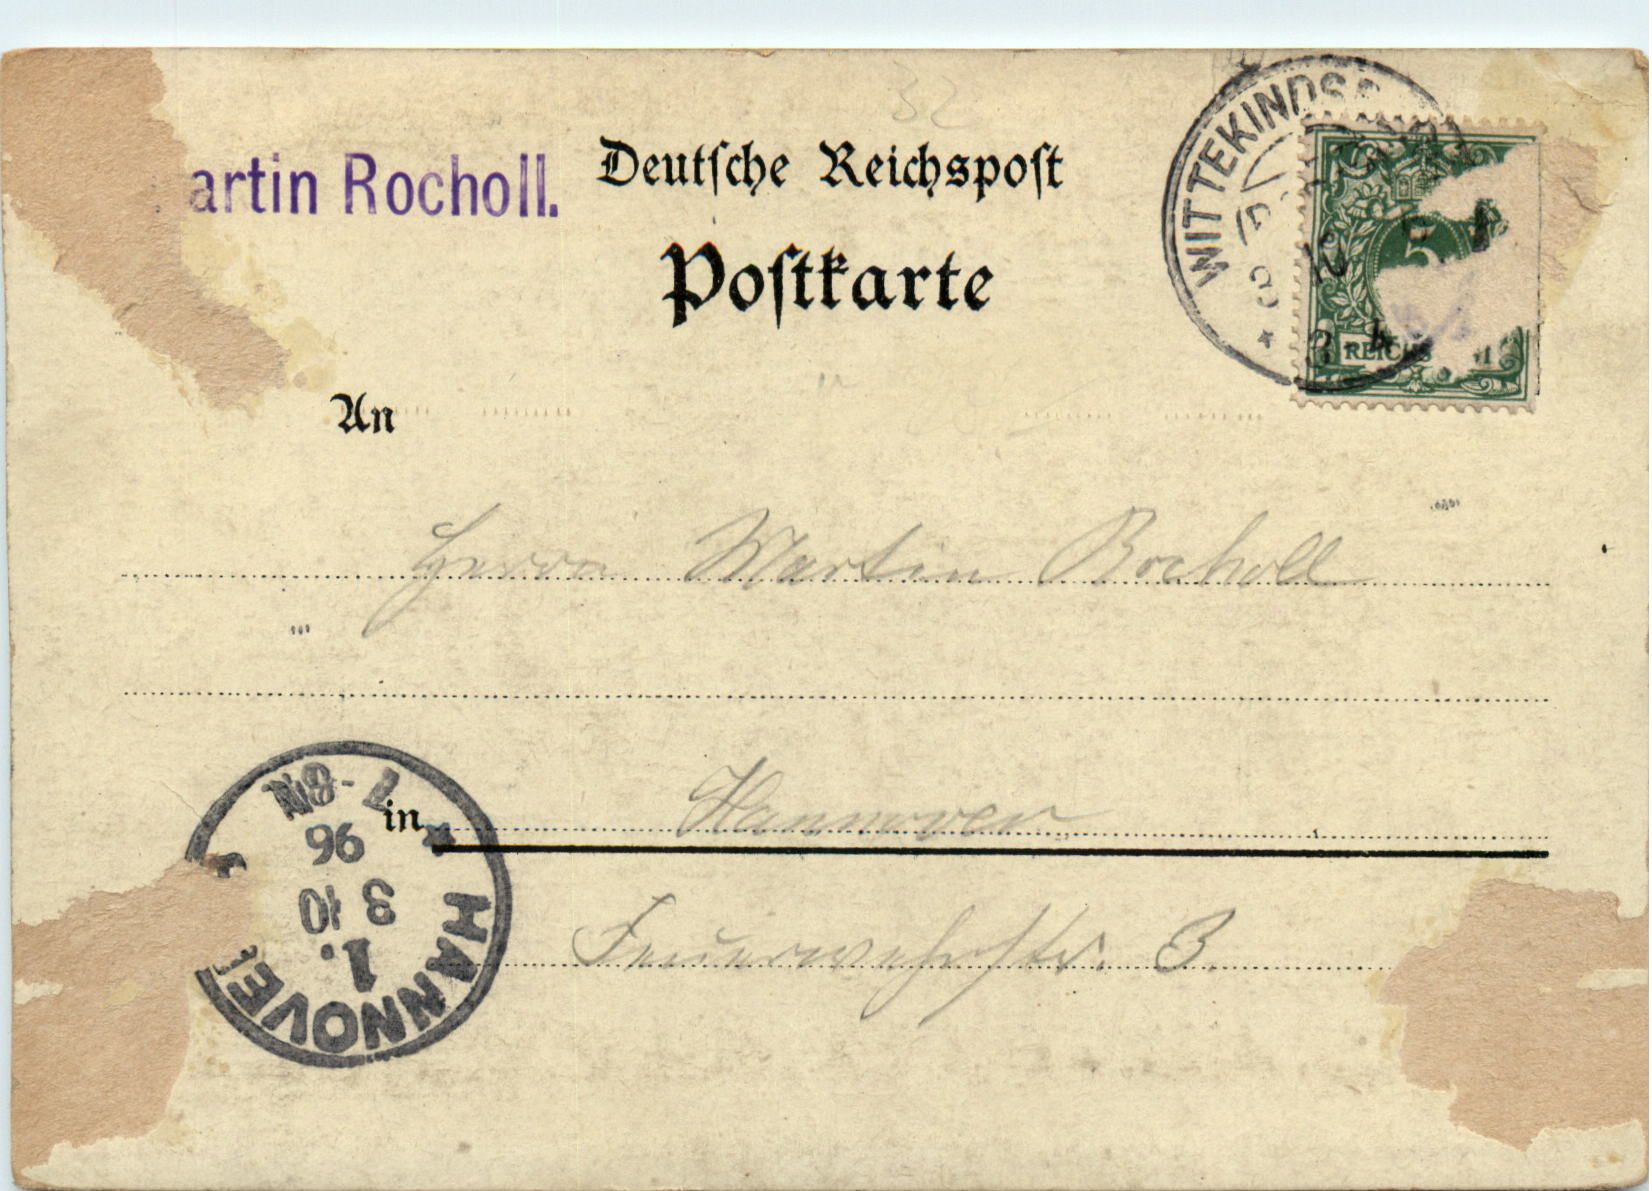 artin Rocholl.
Deutſche Reichspoſt
Poſtkarte
WITTEKINDS
32
5
REICHS
An
Herrn Martin Rocholl
in Hannover
Feuerwehrstr. 3.
HANNOVE
1.
3 10
96
7-8N